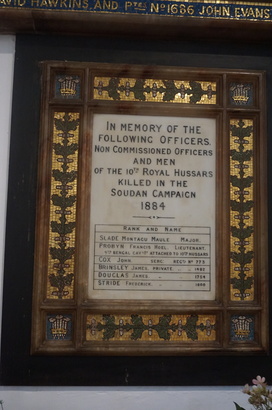 DAVID HAWKINS, AND PTES No 1686 JOHN, EVANS
IN MEMORY OF THE
FOLLOWING OFFICERS.
NON COMMISSIONED OFFICERS
AND MEN
OF THE 10TH ROYAL HUSSARS
KILLED IN THE
SOUDAN CAMPAIGN
1884
RANK AND NAME
SLADE MONTAGU MAULE MAJOR.
PROBYN FRANCIS NOEL LIEUTENANT.
ATTACHED TO 10TH HUSSARS
COX JOHN. SERG. REGTL No 773.
BRINSLEY JAMES. PRIVATE " 1482
DOUGLAS JAMES. "
STRIDE FREDERICK.